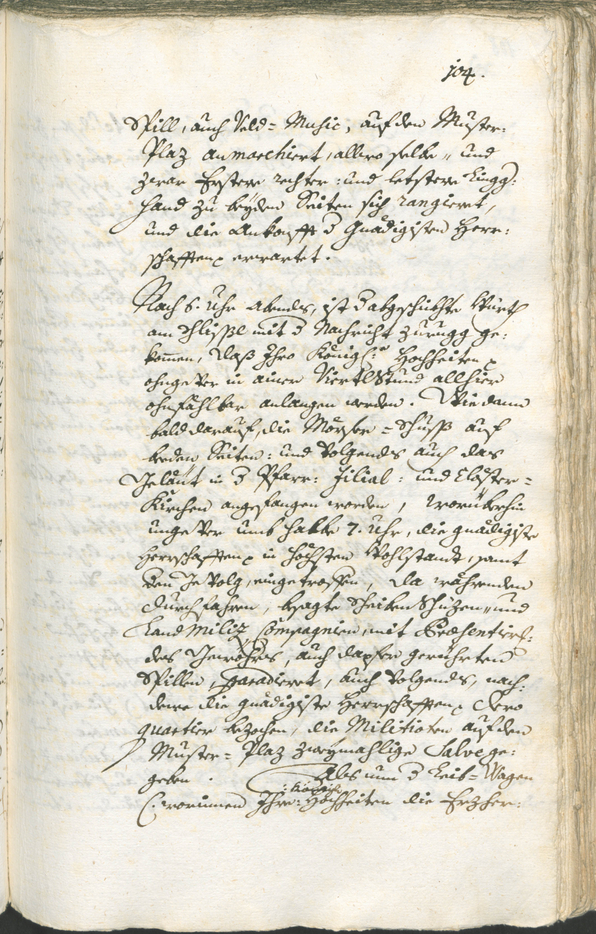 104.
Spill, auch Veld= Music, auf den Muster=
Plaz anmarchiert, allwo selbe, und
zwar Erstere rechter: und letstere Lingg:
hand zu beyden Seiten sich rangieret,
und die Ankonfft d Gnädigisten Herr:
schafften erwartet.
Nach 6. Uhr Abends, ist d abgeschickte Würth
am mit d Nachricht zurugg ge:
komen, daß Ihro Königl: Hochheiten
ohngever in ainer Viertlstund allhier
ohnfählbar anlangen werden. Wie dann
bald darauf, die Mörser=Schüss auf
beeden Seiten: und volgends auch das
Geläut in d Pfarr: Filial: und Closter=
Kirchen angefangen worden, worüberhin
ungever umb halbe 7. Uhr, die gnädigiste
Herrschafften in höchsten Wohlstandt, samt
dem Gevolg, eingetroffen, da währenden
durchfahren, besagte Scheibenschüzen, und
Landmiliz Compagnien, mit Præsentier:
des Gewöhrs, auch dapfer gerührten
Spillen, paradieret, auch volgends, nach:
deme die gnädigiste Herrschafften dero
quartier bezochen, die Militioten auf den
Muster= Plaz zweymahlige Salve ge:
geben. Als nun d Leib=Wagen
(: worinnen Ihro Königl: Hochheiten die Erzher: